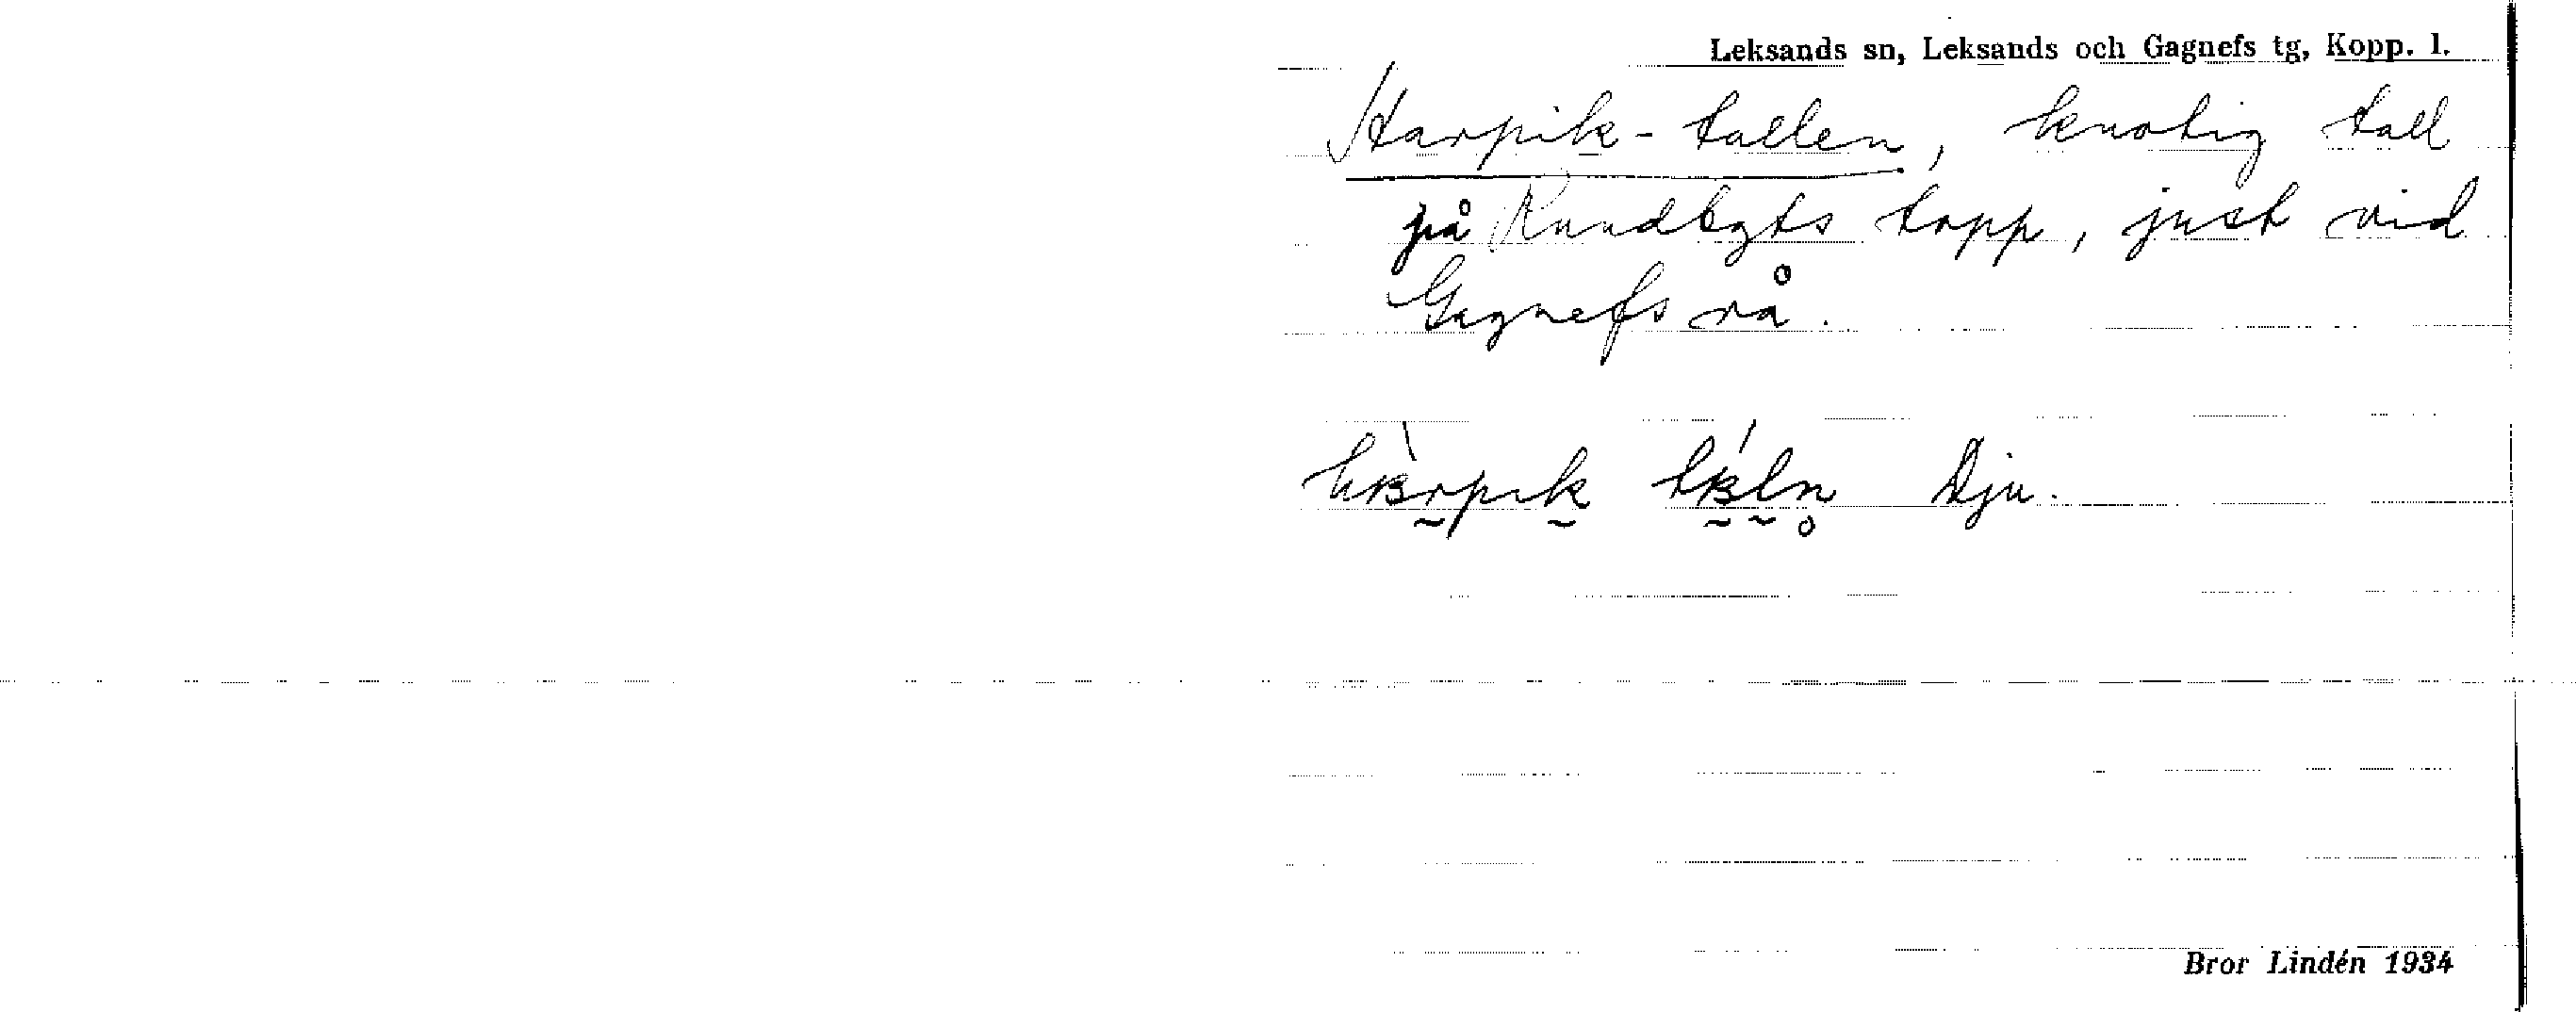 Leksands sn, Leksands och Gagnefs tg, Kopp. l.
Harpik-tallen, knotig tall
på Rundbgts topp, just vid
Gagnefs rå.
Dju.
Bror Lindén 1934